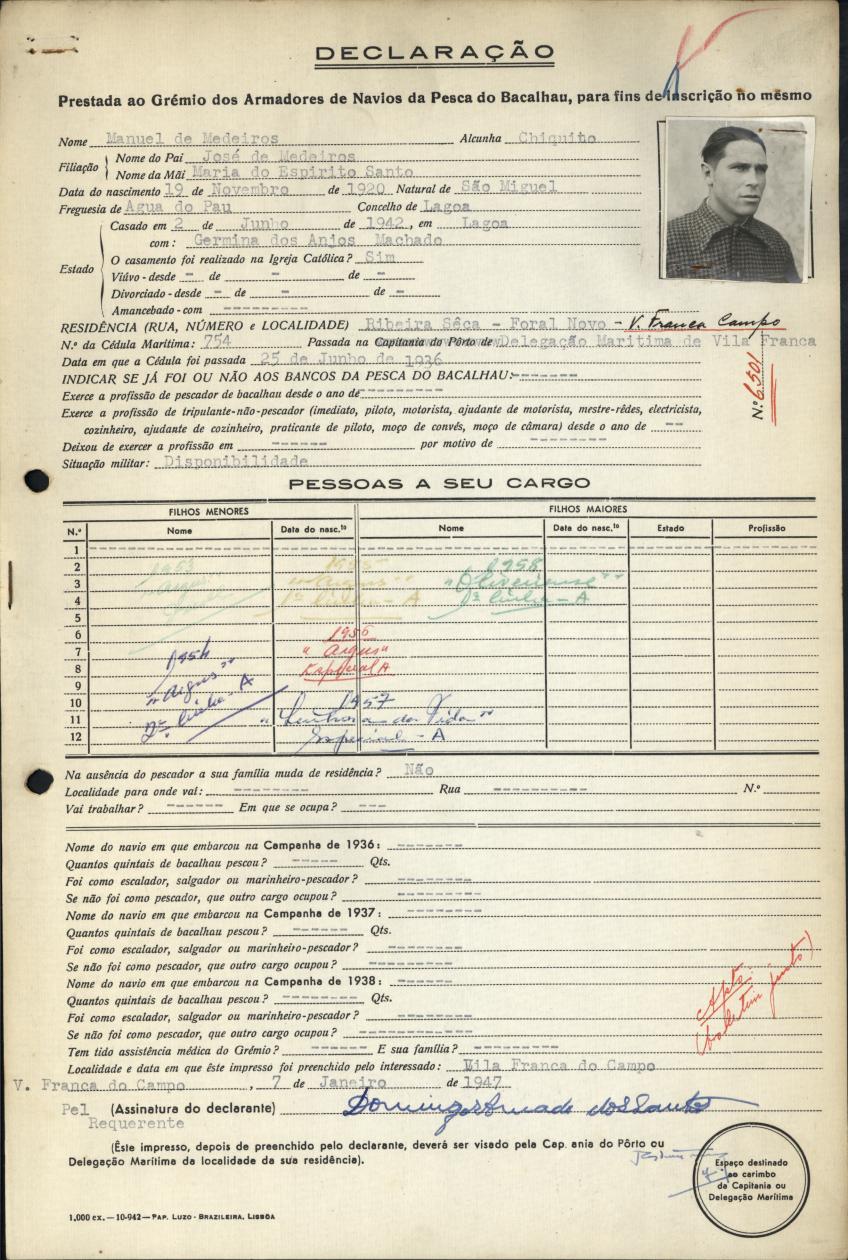 DECLARAÇÃO
Prestada ao Grémio dos Armadores de Navios da Pesca do Bacalhau, para fins de inscrição no mesmo
Nome Manuel de Medeiros Alcunha Chiquito
Filiação
Nome do Pai José de Medeiros
Nome da Mãi Maria do Espirito Santo
Data do nascimento 19 de Novembro de 1920 Natural de São Miguel
Freguesia de Agua do Pau Concelho de Lagoa
Estado
Casado em 2 de Junho de 1942, em Lagoa
com: Germina dos Anjos Machado
O casamento foi realizado na Igreja Católica? Sim
Viúvo - desde - de - de -
Divorciado - desde - de - de -
Amancebado - com ----------
RESIDÊNCIA (RUA, NÚMERO e LOCALIDADE) Ribeira Sêca - Foral Novo - V. Franca Campo
N.º da Cédula Maritima: 754 Passada na Capitania do Pôrto de Delegação Maritima de Vila Franca
Data em que a Cédula foi passada 25 de Junho de 1936
INDICAR SE JÁ FOI OU NÃO AOS BANCOS DA PESCA DO BACALHAU: -------
Exerce a profissão de pescador de bacalhau desde o ano de ---------
Exerce a profissão de tripulante-não-pescador (imediato, piloto, motorista, ajudante de motorista, mestre-rêdes, electricista,
cozinheiro, ajudante de cozinheiro, praticante de piloto, moço de convés, moço de câmara) desde o ano de --
Deixou de exercer a profissão em ------ por motivo de --------
Situação militar: Disponibilidade
N.º 6.501
PESSOAS A SEU CARGO
FILHOS MENORES FILHOS MAIORES
N.º Nome Data do nasc.to Nome Data do nasc.to Estado Profissão
1
2 1953 1955 1958
3 "Argus" "Argus" "Oliveirense"
4 1ª linha - A 1ª linha - A
5
6 1956
7 1954 "Argus"
8 Especial A
9 "Argus"
10 2ª linha - A 1957
11 "Senhora da Vida"
12 Especial - A
Na ausência do pescador a sua família muda de residência? Não
Localidade para onde vai: -------- Rua ---------- N.º
Vai trabalhar? ------ Em que se ocupa? ---
Nome do navio em que embarcou na Campanha de 1936: -------
Quantos quintais de bacalhau pescou? ----- Qts.
Foi como escalador, salgador ou marinheiro-pescador? --------
Se não foi como pescador, que outro cargo ocupou? ---------
Nome do navio em que embarcou na Campanha de 1937: --------
Quantos quintais de bacalhau pescou? ------ Qts.
Foi como escalador, salgador ou marinheiro-pescador? --------
Se não foi como pescador, que outro cargo ocupou? ---------
Nome do navio em que embarcou na Campanha de 1938: -----
Quantos quintais de bacalhau pescou? -------- Qts.
Foi como escalador, salgador ou marinheiro-pescador? ---------
Se não foi como pescador, que outro cargo ocupou? ------------
Apto.
(boletim junto)
Tem tido assistência médica do Grémio? ------ E sua família? ---------
Localidade e data em que êste impresso foi preenchido pelo interessado: Vila Franca do Campo
V. Franca do Campo, 7 de Janeiro de 1947
Pel (Assinatura do declarante) Domingos Amado dos Santos
Requerente
(Êste impresso, depois de preenchido pelo declarante, deverá ser visado pela Cap. ania do Pôrto ou
Delegação Marítima da localidade da sua residência).
Espaço destinado
ao carimbo
da Capitania ou
Delegação Marítima
1.000 ex. - 10-942 - PAP. LUZO - BRAZILEIRA, LISBÔA